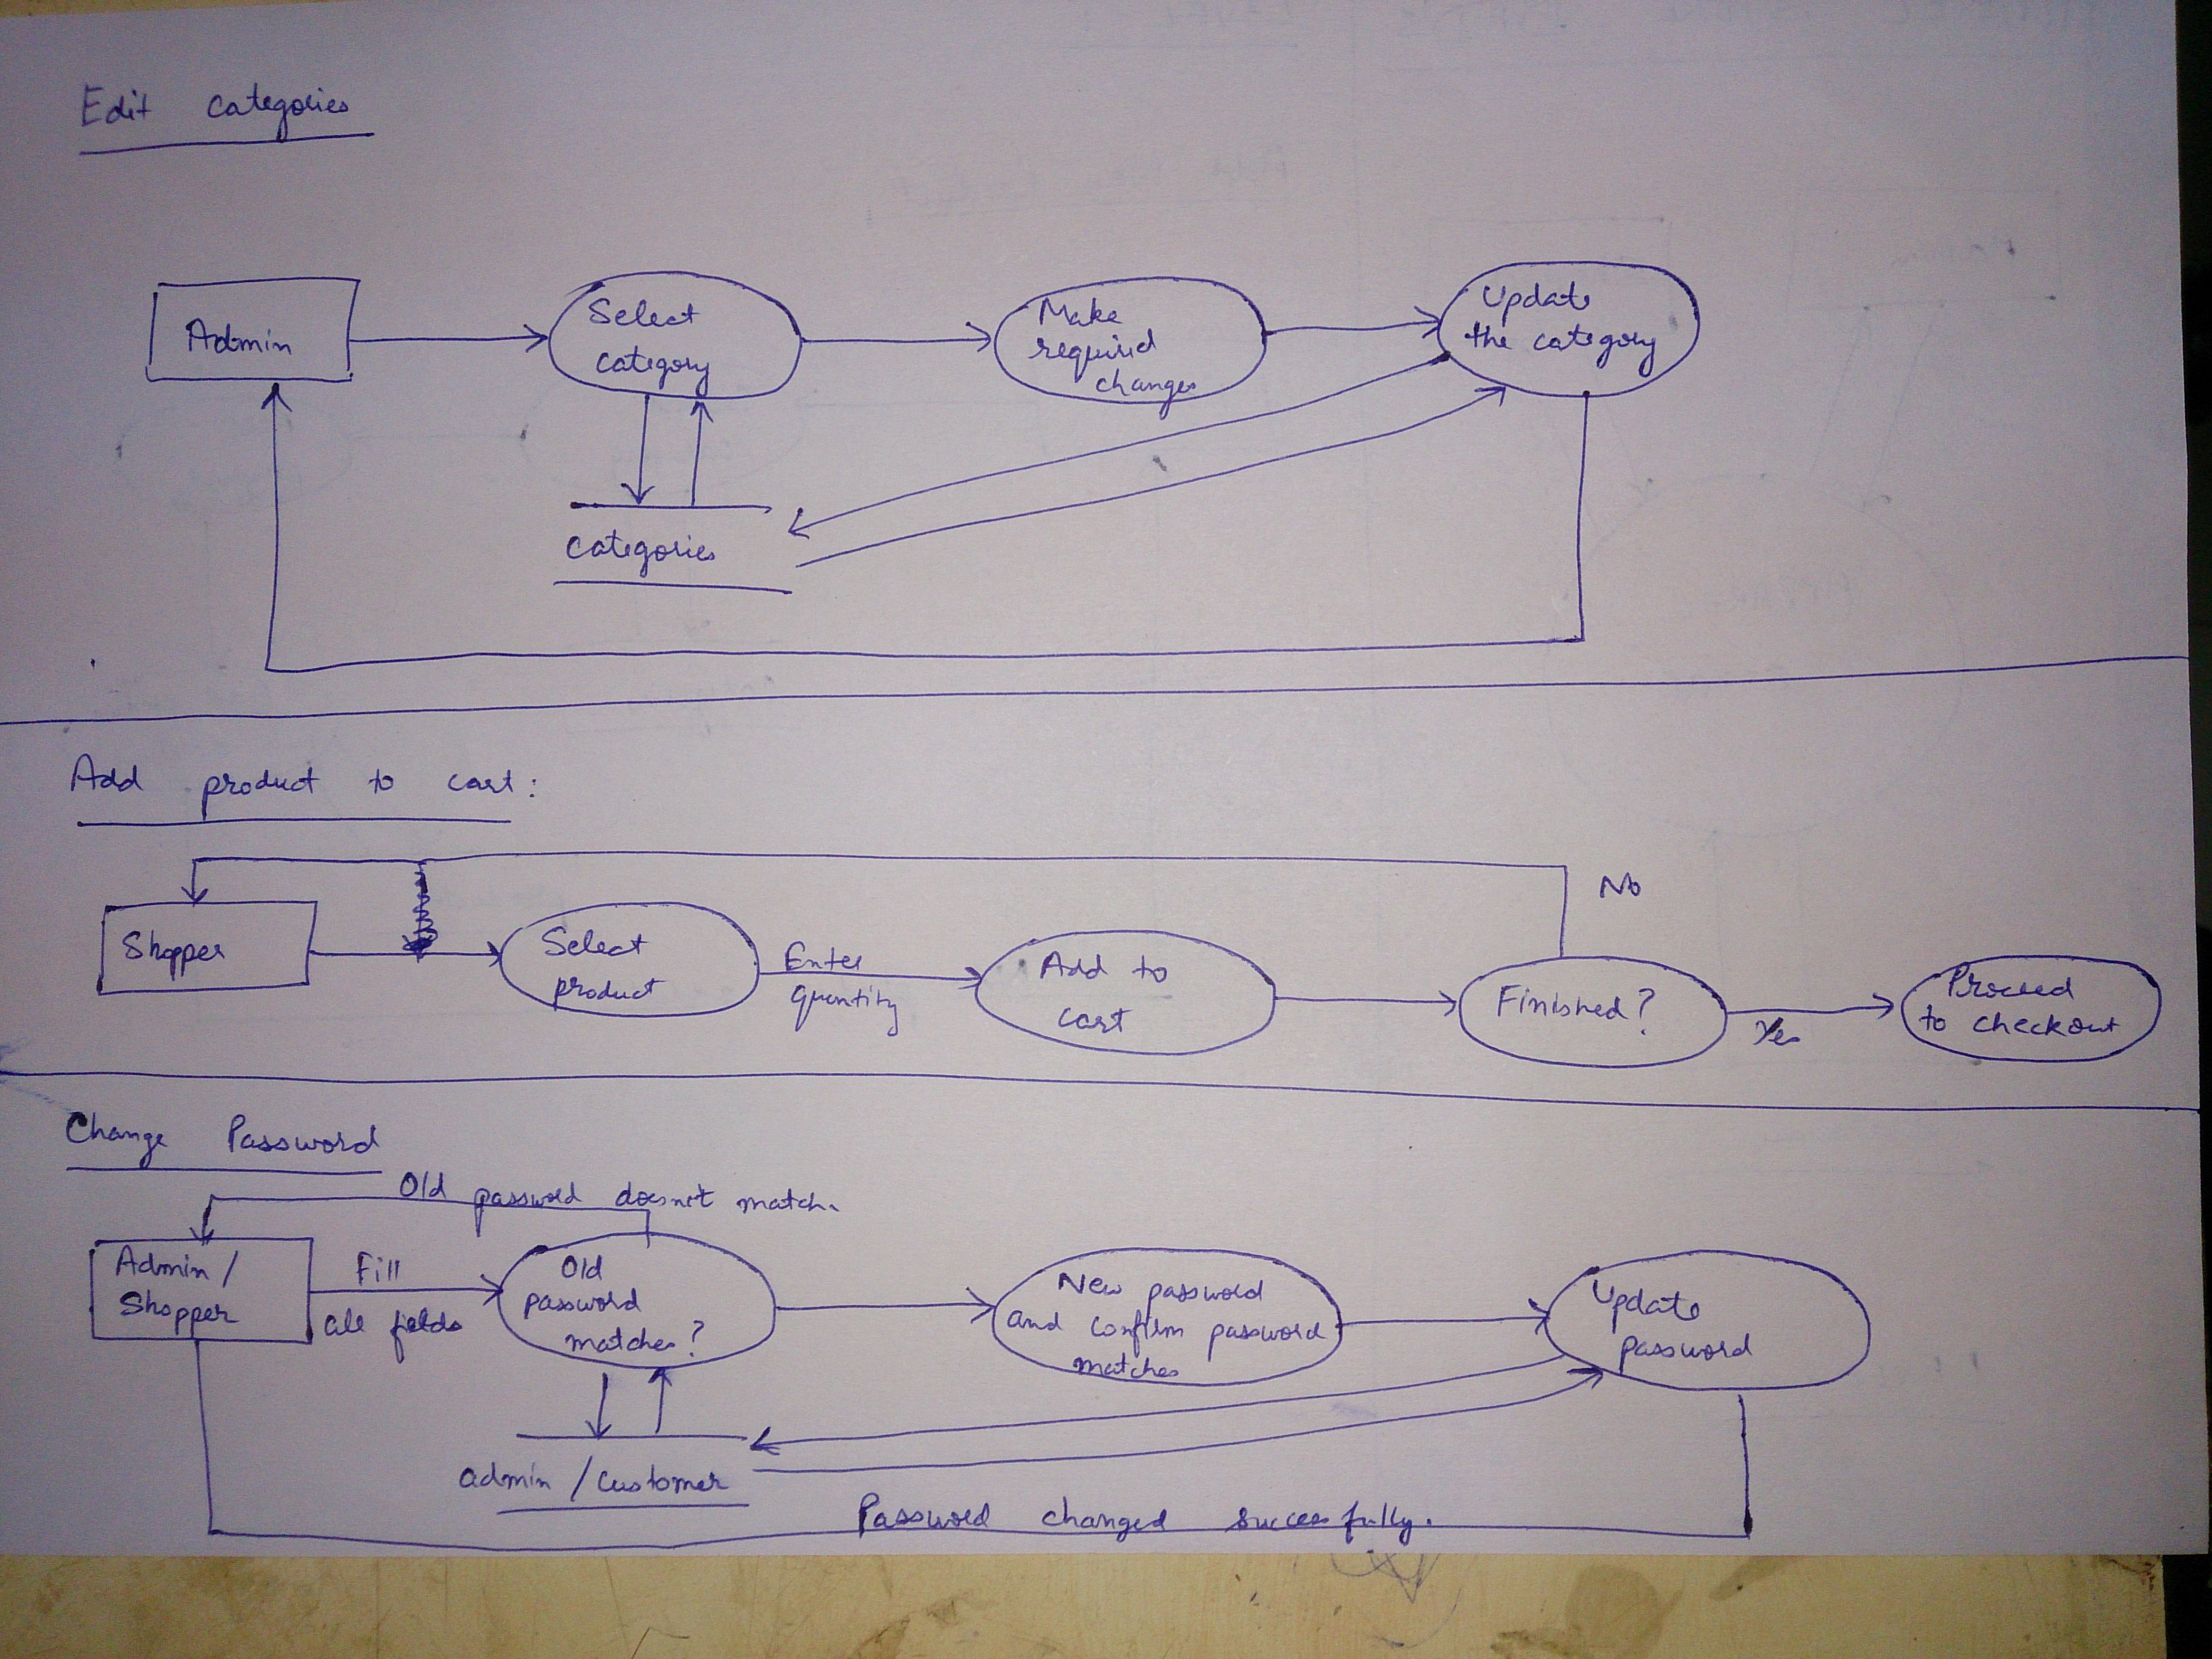 Edit categories
Admin
Select
category
Make
required
changes
Update
the category
categories
Add product to cart:
No
Shopper
Select
product
Enter
quantity
Add to
cart
Finished?
Yes
Proceed
to checkout
Change Password
Old password doesn't match.
Admin/
Shopper
Fill
all fields
Old
password
matches?
New password
and confirm password
matches
Update
password
admin / customer
Password changed successfully.